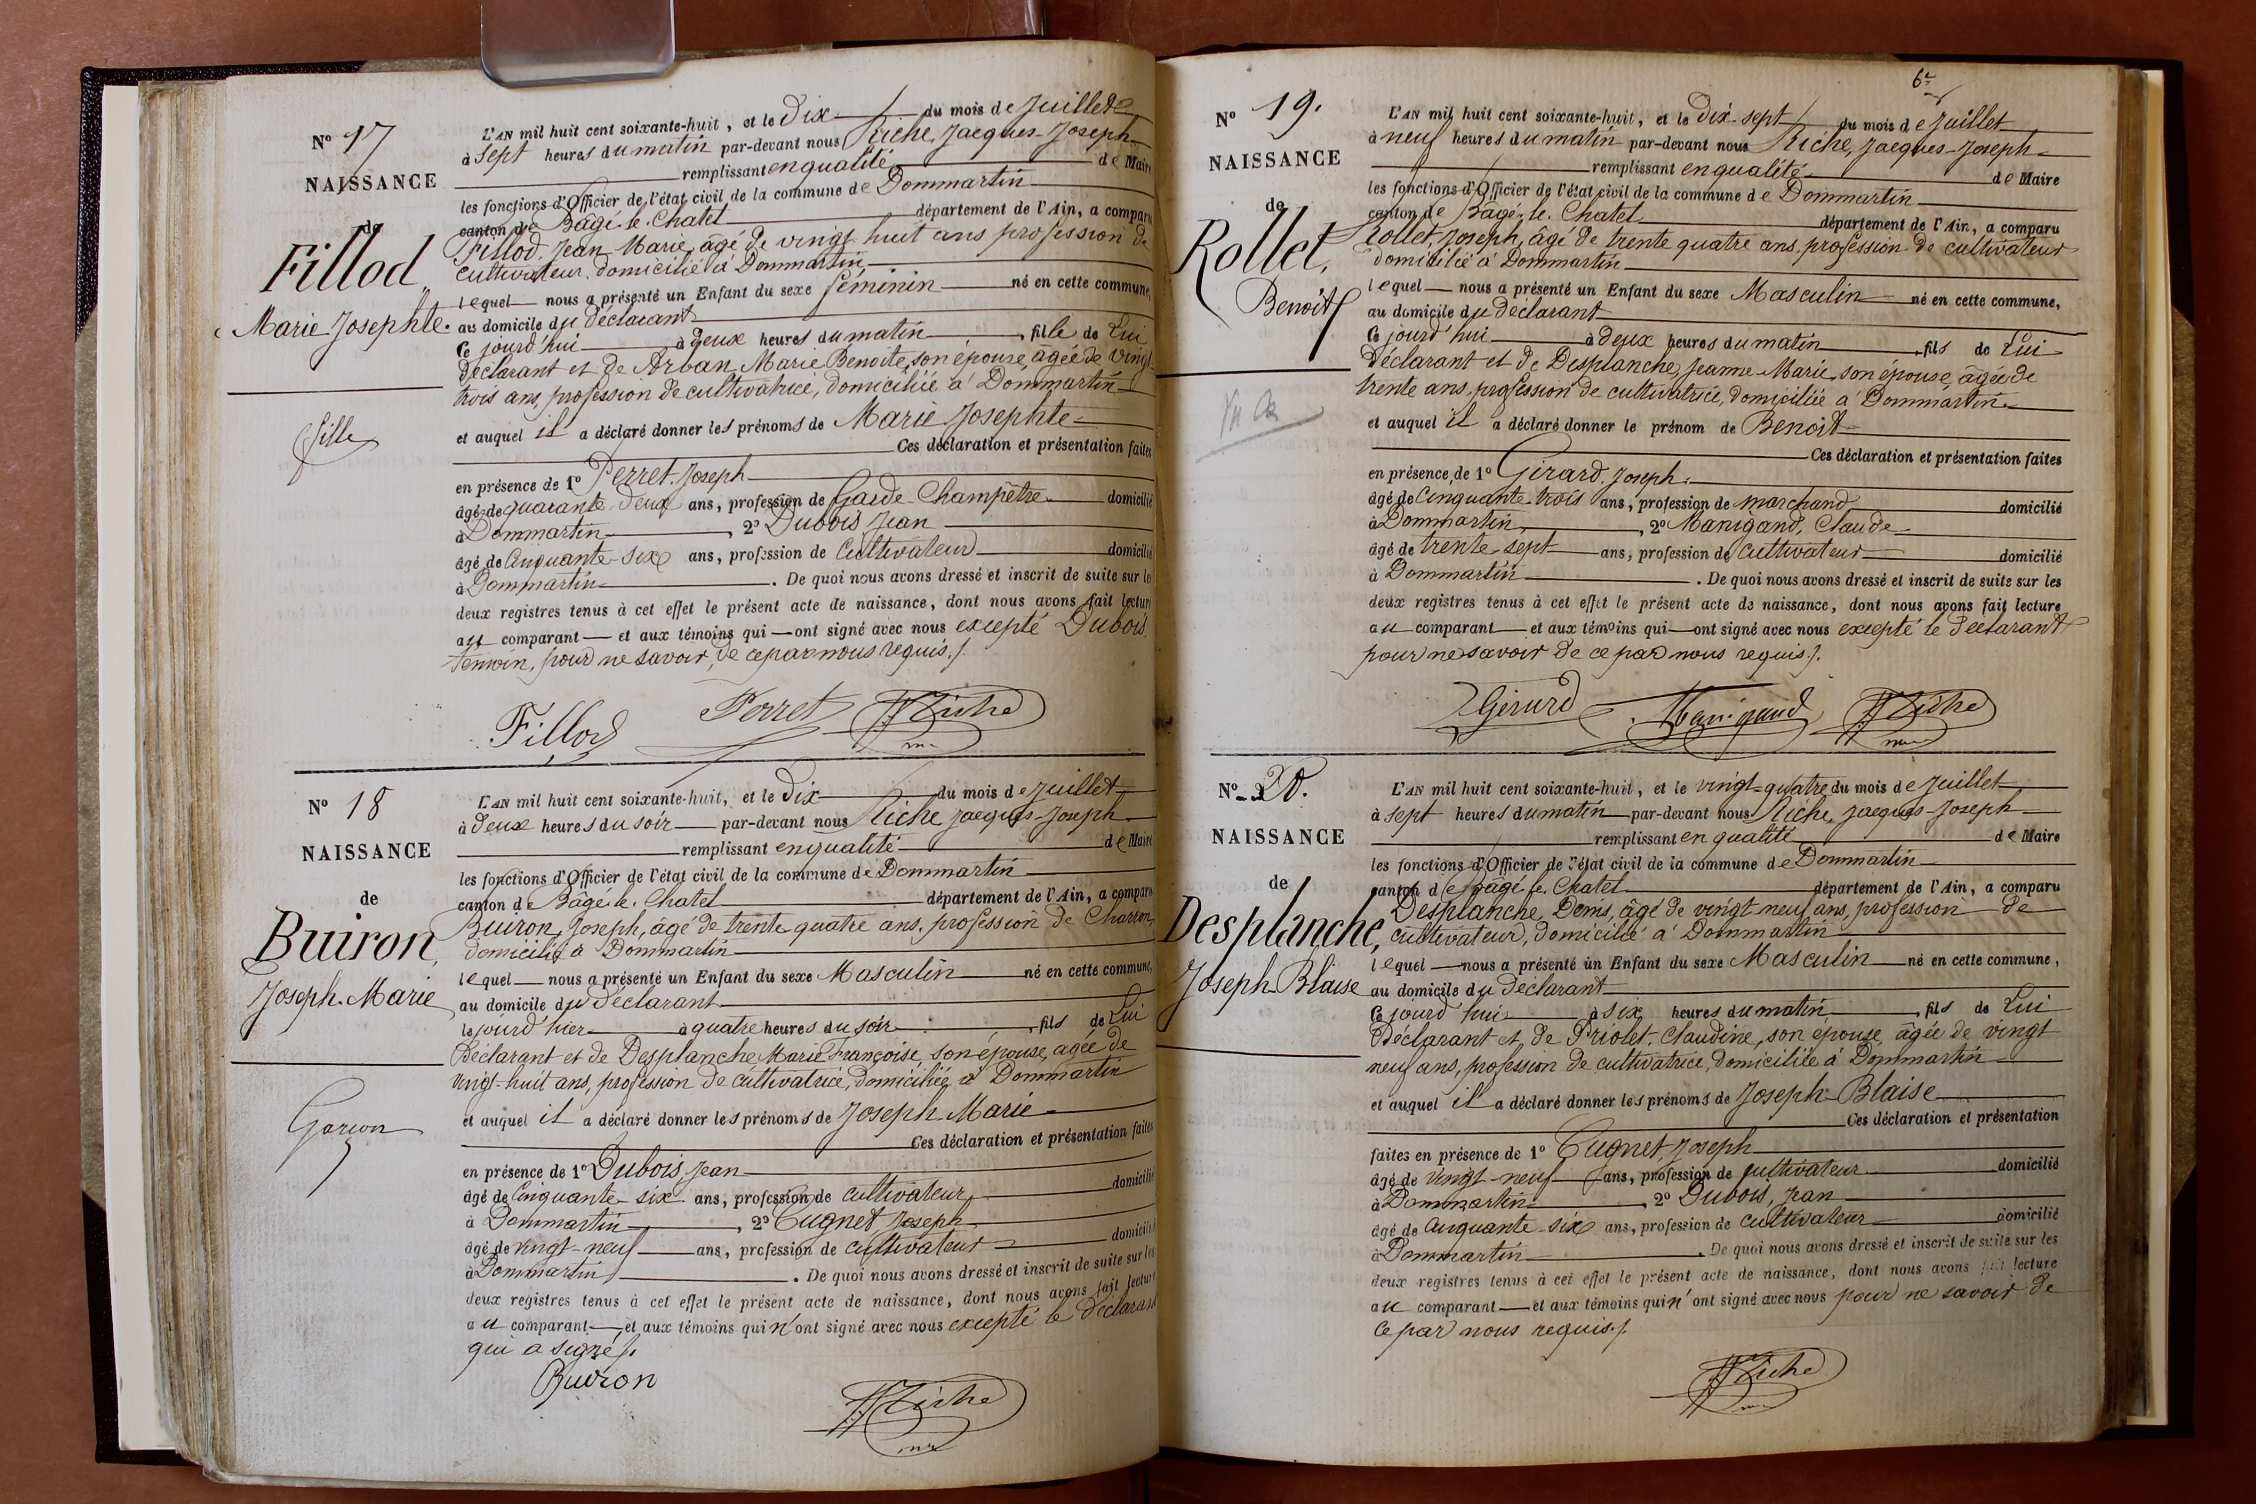 Nº 17
NAISSANCE
de
Fillod
Marie Josephte.
fille
L'AN mil huit cent soixante-huit, et le Dix du mois de Juillet
à sept heures du matin par-devant nous Riche, Jacques-Joseph
remplissant en qualité de Maire
les fonctions d'Officier de l'état civil de la commune de Dommartin
canton de Bâgé-le-Chatel département de l'Ain, a comparu
Fillod, Jean-Marie, âgé de vingt huit ans profession de
cultivateur, domicilié à Dommartin
lequel nous a présenté un Enfant du sexe féminin né en cette commune,
au domicile du déclarant
Ce jourd'hui à deux heures du matin, fille de Lui
Déclarant et de Arban, Marie Benoite, son épouse, âgée de vingt-
trois ans, profession de cultivatrice, domiciliée à Dommartin
et auquel il a déclaré donner les prénoms de Marie Josephte
Ces déclaration et présentation faites
en présence de 1º Perret, Joseph
âgé de quarante-deux ans, profession de Garde-Champêtre domicilié
à Dommartin, 2º Dubois Jean
âgé de Cinquante-six ans, profession de Cultivateur domicilié
à Dommartin. De quoi nous avons dressé et inscrit de suite sur les
deux registres tenus à cet effet le présent acte de naissance, dont nous avons fait lecture
au comparant et aux témoins qui ont signé avec nous excepté Dubois,
témoin, pour ne savoir, de ce par nous requis./.
Fillod Perret JJ Riche
Nº 18
NAISSANCE
de
Buiron,
Joseph-Marie
Garcon
L'AN mil huit cent soixante-huit, et le Dix du mois de Juillet
à deux heures du soir par-devant nous Riche Jacques-Joseph
remplissant en qualité de Maire
les fonctions d'Officier de l'état civil de la commune de Dommartin
canton de Bâgé-le-Chatel département de l'Ain, a comparu
Buiron, Joseph, âgé de trente quatre ans, profession de Charron,
domicilié à Dommartin
lequel nous a présenté un Enfant du sexe Masculin né en cette commune,
au domicile du Déclarant
le jourd'hier à quatre heures du soir, fils de Lui
Déclarant et de Desplanche Marie Françoise, son épouse, agée de
vingt-huit ans, profession de cultivatrice, domiciliée à Dommartin
et auquel il a déclaré donner les prénoms de Joseph Marie
Ces déclaration et présentation faites
en présence de 1º Dubois, Jean
âgé de Cinquante-six ans, profession de cultivateur, domicilié
à Dommartin, 2º Cugnet Joseph
âgé de vingt-neuf ans, profession de cultivateur domicilié
à Dommartin. De quoi nous avons dressé et inscrit de suite sur les
deux registres tenus à cet effet le présent acte de naissance, dont nous avons fait lecture
au comparant, et aux témoins qui n'ont signé avec nous excepté le déclarant
qui a signé./.
Buiron JJ Riche
6e
Nº 19.
NAISSANCE
de
Rollet,
Benoit
L'AN mil huit cent soixante-huit, et le Dix-sept du mois de Juillet
à neuf heures du matin par-devant nous Riche, Jacques-Joseph
remplissant en qualité de Maire
les fonctions d'Officier de l'état civil de la commune de Dommartin
canton de Bâgé-le-Chatel département de l'Ain, a comparu
Rollet, Joseph, âgé de trente quatre ans, profession de cultivateur
domicilié à Dommartin
lequel nous a présenté un Enfant du sexe Masculin né en cette commune,
au domicile du déclarant
Ce jourd'hui à deux heures du matin, fils de Lui
Déclarant et de Desplanche, Jeanne-Marie, son épouse, âgée de
trente ans, profession de cultivatrice, domiciliée à Dommartin
et auquel il a déclaré donner le prénom de Benoit
Ces déclaration et présentation faites
en présence de 1º Girard, Joseph
âgé de Cinquante-trois ans, profession de marchand domicilié
à Dommartin, 2º Manigand, Claude
âgé de trente-sept ans, profession de cultivateur domicilié
à Dommartin. De quoi nous avons dressé et inscrit de suite sur les
deux registres tenus à cet effet le présent acte de naissance, dont nous avons fait lecture
au comparant et aux témoins qui ont signé avec nous excepté le déclarant
pour ne savoir de ce par nous requis./.
Girard Manigand JJ Riche
Nº 20.
NAISSANCE
de
Desplanche,
Joseph-Blaise
L'AN mil huit cent soixante-huit, et le vingt-quatre du mois de Juillet
à sept heures du matin par-devant nous Riche, Jacques-Joseph
remplissant en qualité de Maire
les fonctions d'Officier de l'état civil de la commune de Dommartin
canton de Bâgé-le-Chatel département de l'Ain, a comparu
Desplanche, Denis, âgé de vingt neuf ans, profession de
cultivateur, domicilié à Dommartin
lequel nous a présenté un Enfant du sexe Masculin né en cette commune,
au domicile du déclarant
Ce jourd'hui à six heures du matin, fils de Lui
Déclarant et de Priolet, Claudine, son épouse, âgée de vingt
neuf ans, profession de cultivatrice, domiciliée à Dommartin
et auquel il a déclaré donner les prénoms de Joseph-Blaise
Ces déclaration et présentation
faites en présence de 1º Cugnet, Joseph
âgé de vingt-neuf ans, profession de cultivateur domicilié
à Dommartin, 2º Dubois, Jean
âgé de Cinquante-six ans, profession de cultivateur domicilié
à Dommartin. De quoi nous avons dressé et inscrit de suite sur les
deux registres tenus à cet effet le présent acte de naissance, dont nous avons fait lecture
au comparant et aux témoins qui n'ont signé avec nous pour ne savoir de
ce par nous requis./.
JJ Riche